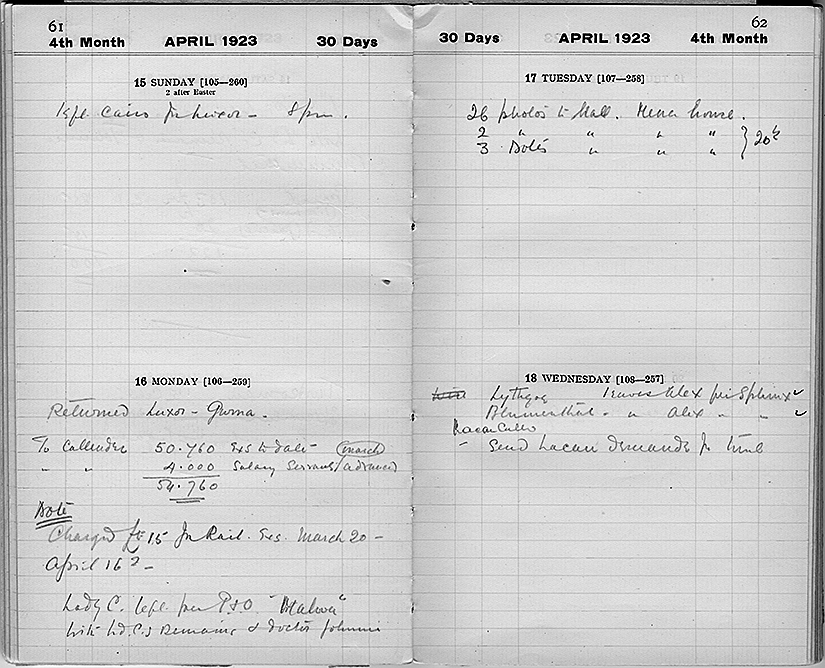 61
4th Month APRIL 1923 30 Days
15 SUNDAY [105—260]
2 after Easter
left Cairo for Luxor — 8 pm.
16 MONDAY [106—259]
Returned Luxor — Gurna.
To Callender 50.760 Exs to date (March)
" " 4.000 Salary Servants/advanced
54.760
Note
Charged for 15 for Rail. Exs. March 20 —
April 16 —
Lady C. left per P.&O. "Malwa"
with Ld. C's Remains & doctor Johnnie
62
30 Days APRIL 1923 4th Month
17 TUESDAY [107—258]
26 photos to Hall. Mena House.
2 " " " "
3 Notes " " " } 20
18 WEDNESDAY [108—257]
Lythgoe leaves Alex per Sphinx
Blumenthal — " Alex " "
Lacau
— Send Lacau demands for Tomb